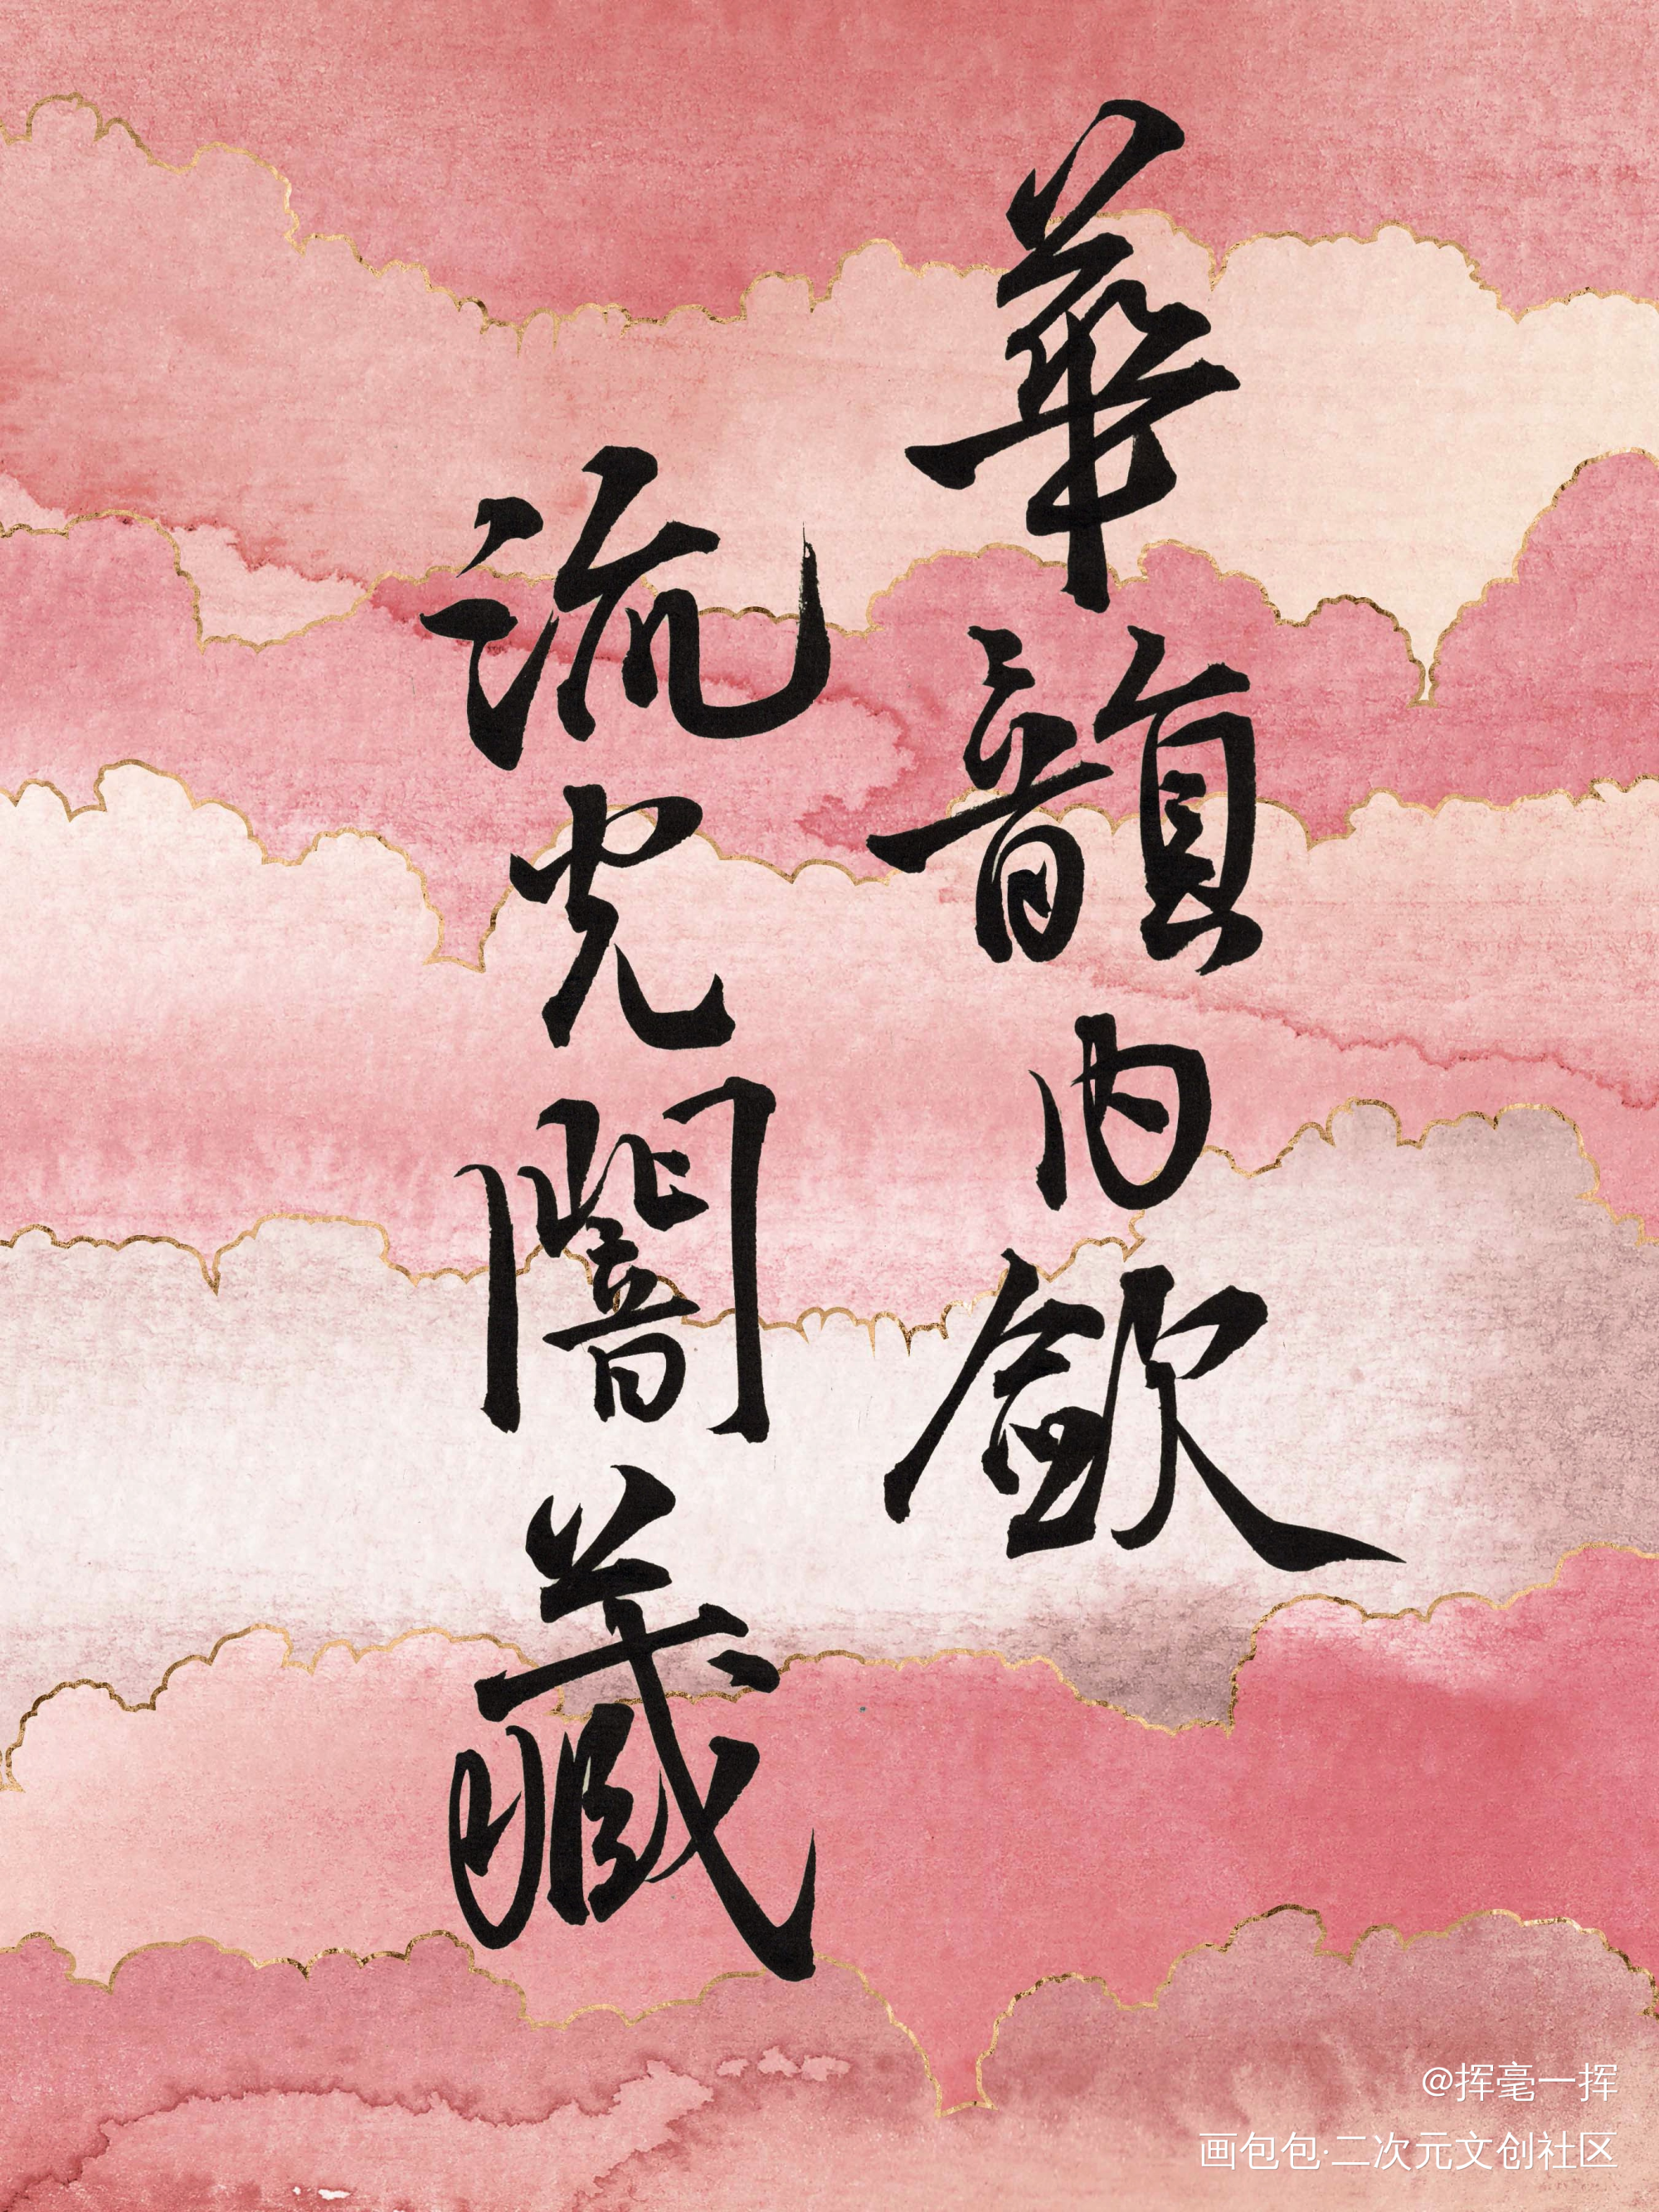 華韻内斂
流光闇藏
@挥毫一挥
画包包·二次元文创社区